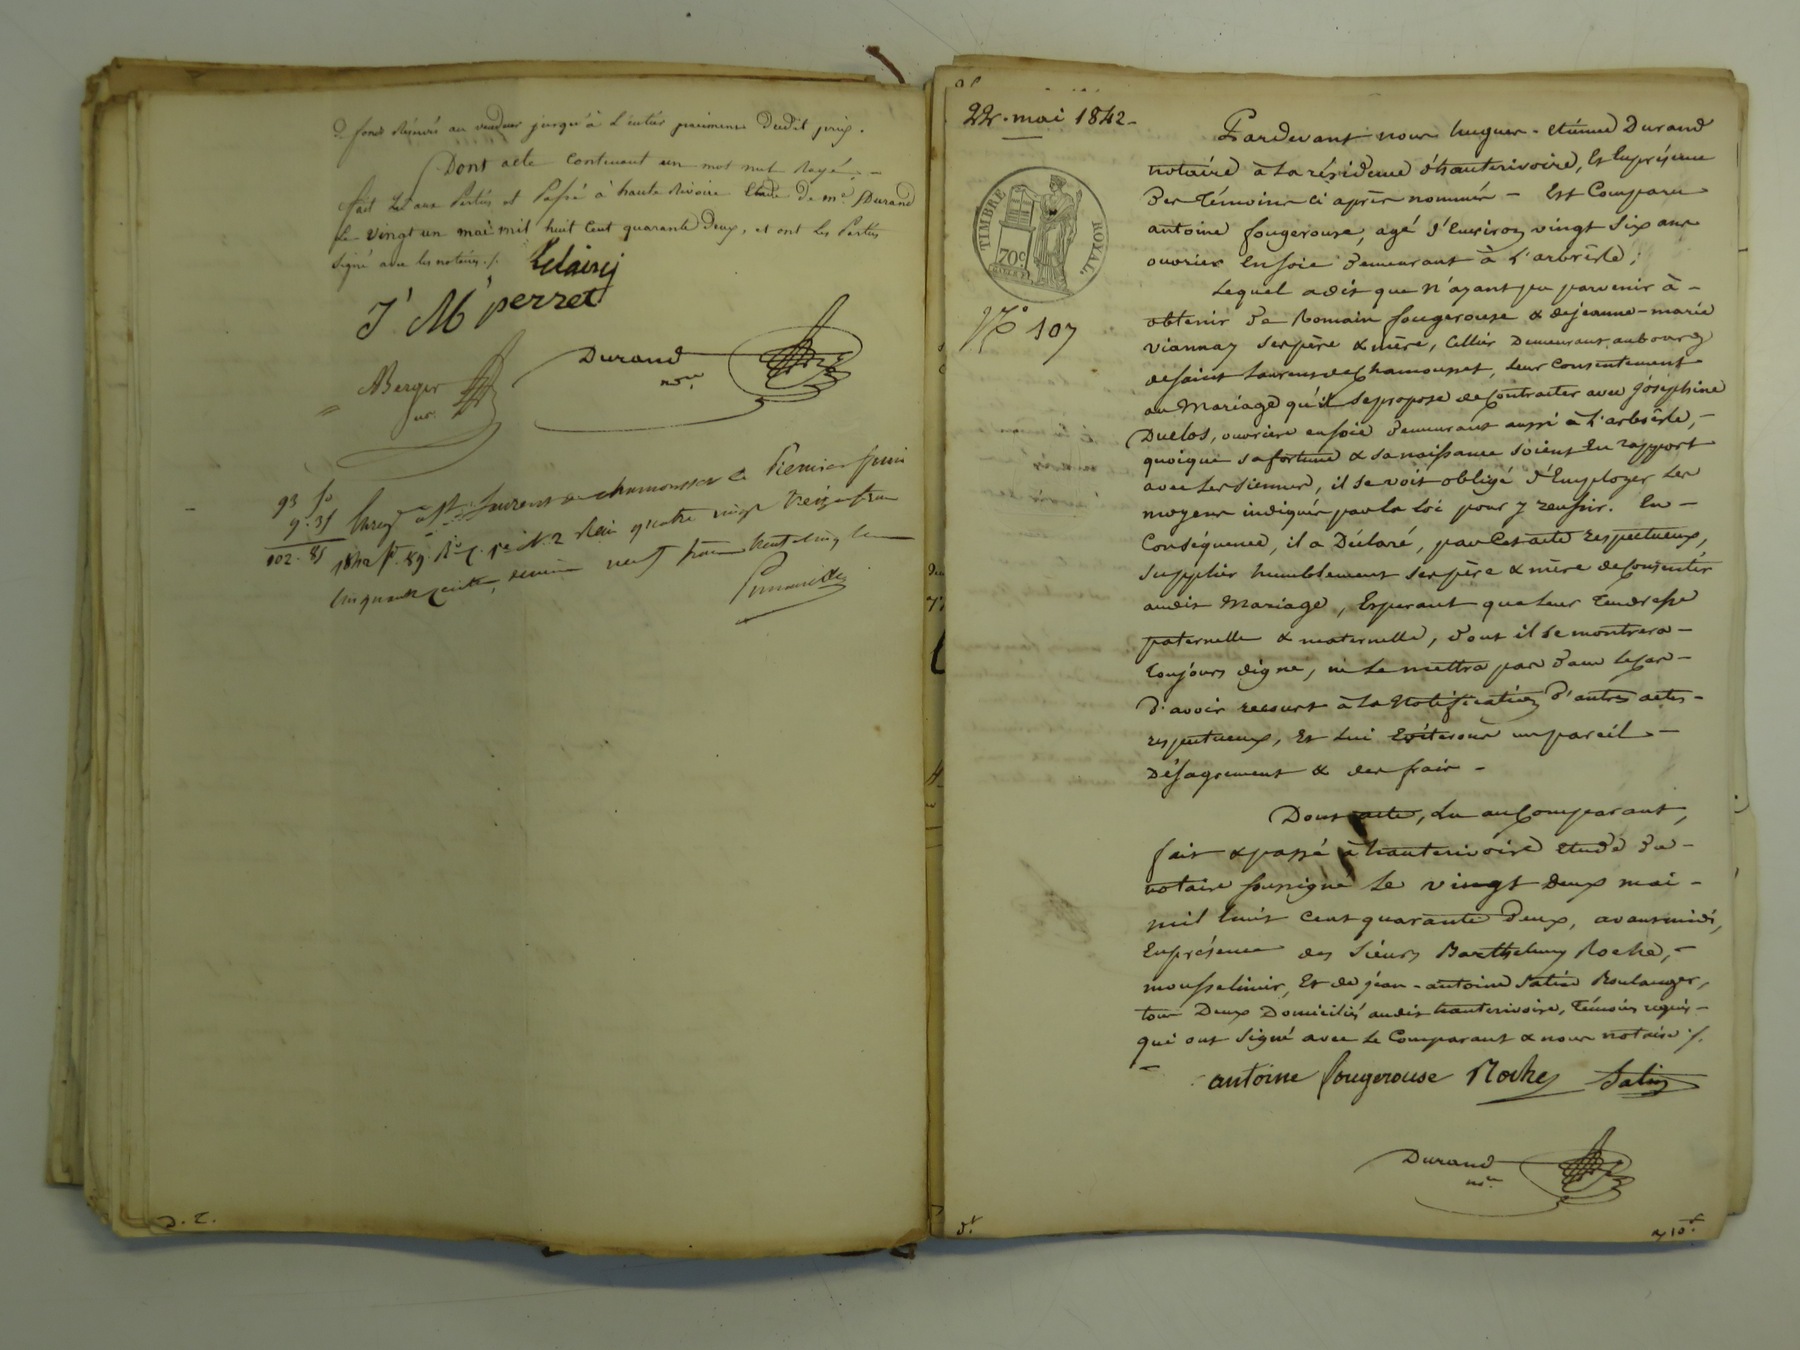 de fonds réservés au vendeur jusqu'à l'entier paiement dudit prix.
Dont acte contenant un mot nul rayé. -
fait lu aux Parties et Passé à haute Rivoire Etude de me Durand
le vingt un mai mil huit cent quarante deux, et ont les Parties
signé avec les notaires ./.
J M perret
Durand
nore
Berger
nre
93 fo
9.35
102.85
Enreg à St Laurent de chamousset le Premier juin
1842 fo 89 Ro C. 1re N. 2 Reçu quatre vingt treize fran
cinquante centes, décime neuf francs trente cinq cen
22 mai 1842 -
TIMBRE ROYAL
70c
No 107
Pardevant nous hugues-etiénne Durand
notaire à la résidence d'hauterivoire, Et En présence
Des Témoins ci après nommés - Est Comparu
antoine fougerouse, agé d'Environ vingt six ans
ouvrier En soie demeurant à L'arbrêsle;
Lequel a dit que n'ayant pu parvenir à -
obtenir de Romain fougerouse & de jeanne-marie
viannay ses père & mère, Cellier Demeurant au bourg
de saint Laurent de Chamousset, leur Consentement
au Mariage qu'il se propose de Contracter avec joséphine
Duclos, ouvriere en soie demeurant aussi à L'arbrêsle, -
quoique sa fortune & sa naissance soient En rapport
avec les siennes, il se voit obligé d'Employer les
moyens indiqués par la loi pour y réussir. En -
Conséquence, il a Déclaré, par Cet acte respectueux,
supplier humblement ses père & mère de Consentir
audit Mariage, Esperant que leur Tendresse
paternelle & maternelle, dont il se montrera -
Toujours digne, ne le mettra pas dans le cas -
d'avoir recourt à la Notification d'autres actes -
respectueux, Et lui Eviteront un pareil -
Désagrement & des frais -
Dont acte, Lu au Comparant,
fait & passé à hauterivoire etude du -
notaire soussigné Le vingt Deux mai -
mil huit cent quarante deux, avant midi,
En présence des Sieurs Barthelemy Roche, -
mousselinier, Et de jean-antoine Satin Boulanger,
tous Deux Domiciliés audit hauterivoire, Témoins requis -
qui ont signé avec Le Comparant & nous notaire ./.
antoine fougerouse Roche Satin
Durand
nre